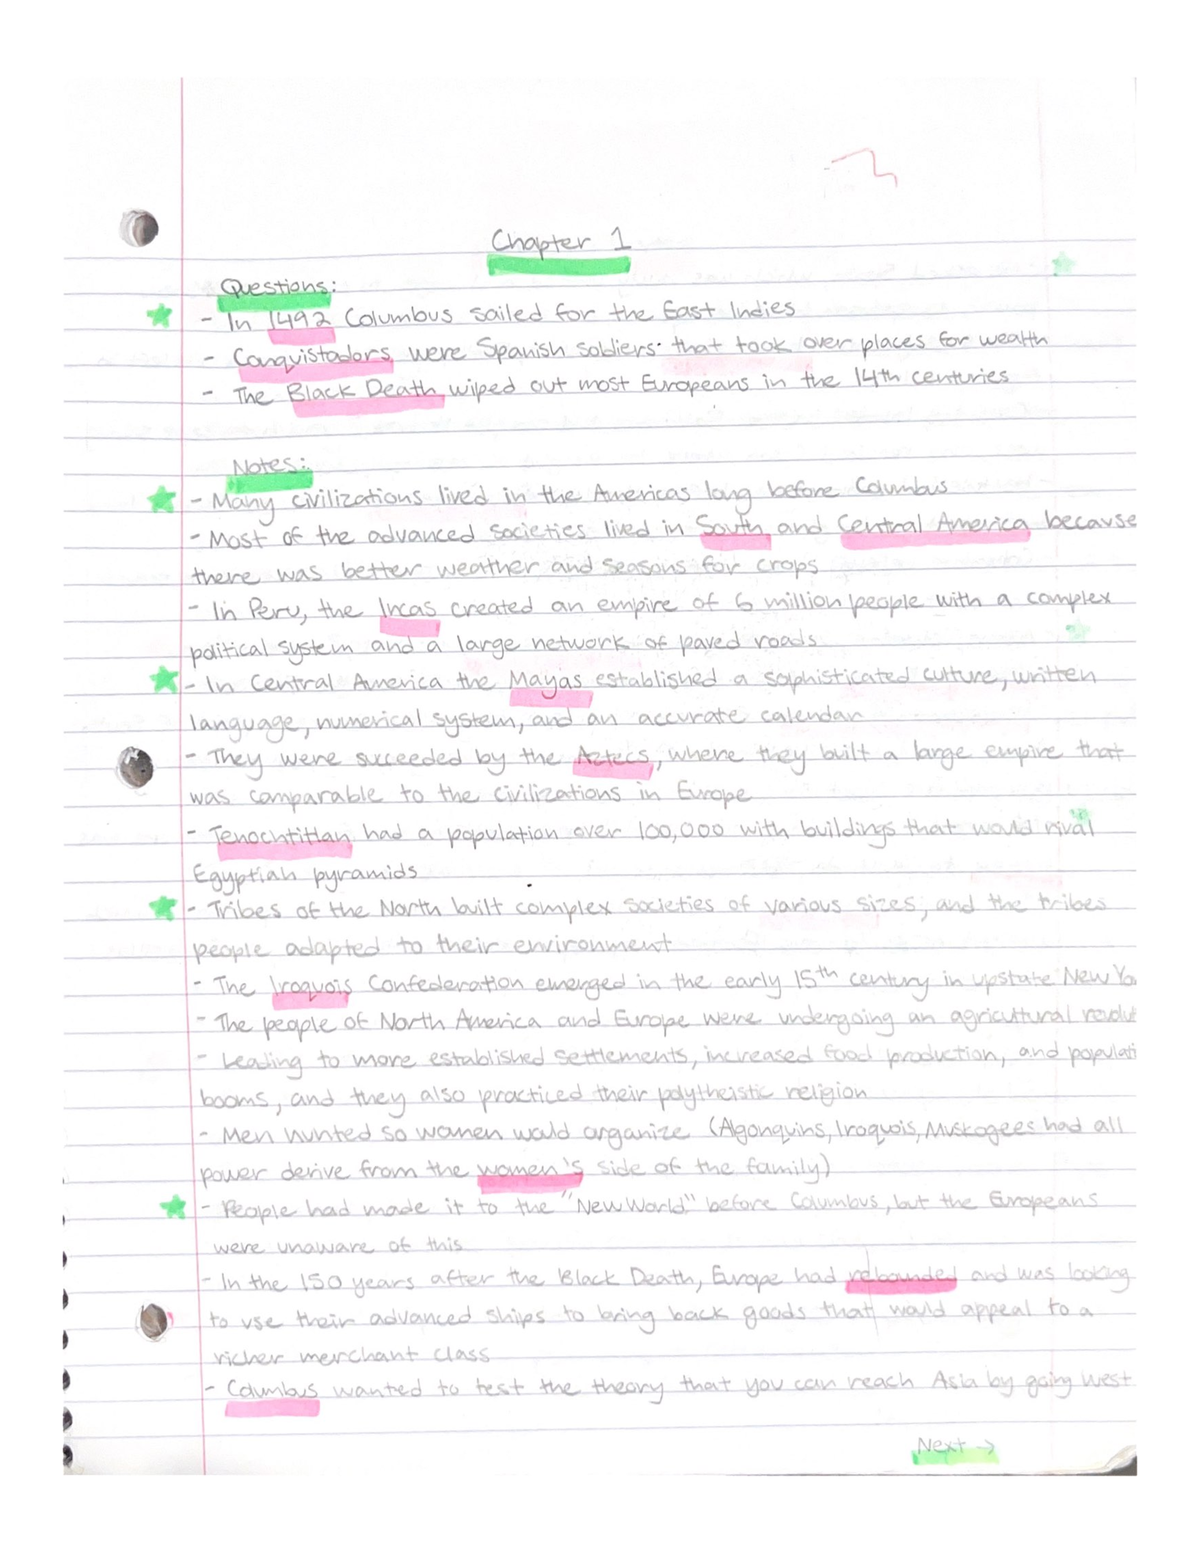 Chapter 1
Questions:
- In 1492 Columbus sailed for the East Indies
- Conquistadors were Spanish soldiers that took over places for wealth
- The Black Death wiped out most Europeans in the 14th centuries
Notes:
- Many civilizations lived in the Americas long before Columbus
- Most of the advanced societies lived in South and Central America because
there was better weather and seasons for crops
- In Peru, the Incas created an empire of 6 million people with a complex
political system and a large network of paved roads
- In Central America the Mayas established a sophisticated culture, written
language, numerical system, and an accurate calendar
- They were succeeded by the Aztecs, where they built a large empire that
was comparable to the civilizations in Europe
- Tenochtitlan had a population over 100,000 with buildings that would rival
Egyptian pyramids
- Tribes of the North built complex societies of various sizes, and the tribes
people adapted to their environment
- The Iroquois Confederation emerged in the early 15th century in upstate New Yo
- The people of North America and Europe were undergoing an agricultural revolut
- Leading to more established settlements, increased food production, and populati
booms, and they also practiced their polytheistic religion
- Men hunted so women would organize (Algonquins, Iroquois, Muskogees had all
power derive from the women's side of the family)
- People had made it to the "New World" before Columbus, but the Europeans
were unaware of this
- In the 150 years after the Black Death, Europe had rebounded and was looking
to use their advanced ships to bring back goods that would appeal to a
richer merchant class
- Columbus wanted to test the theory that you can reach Asia by going west
Next →